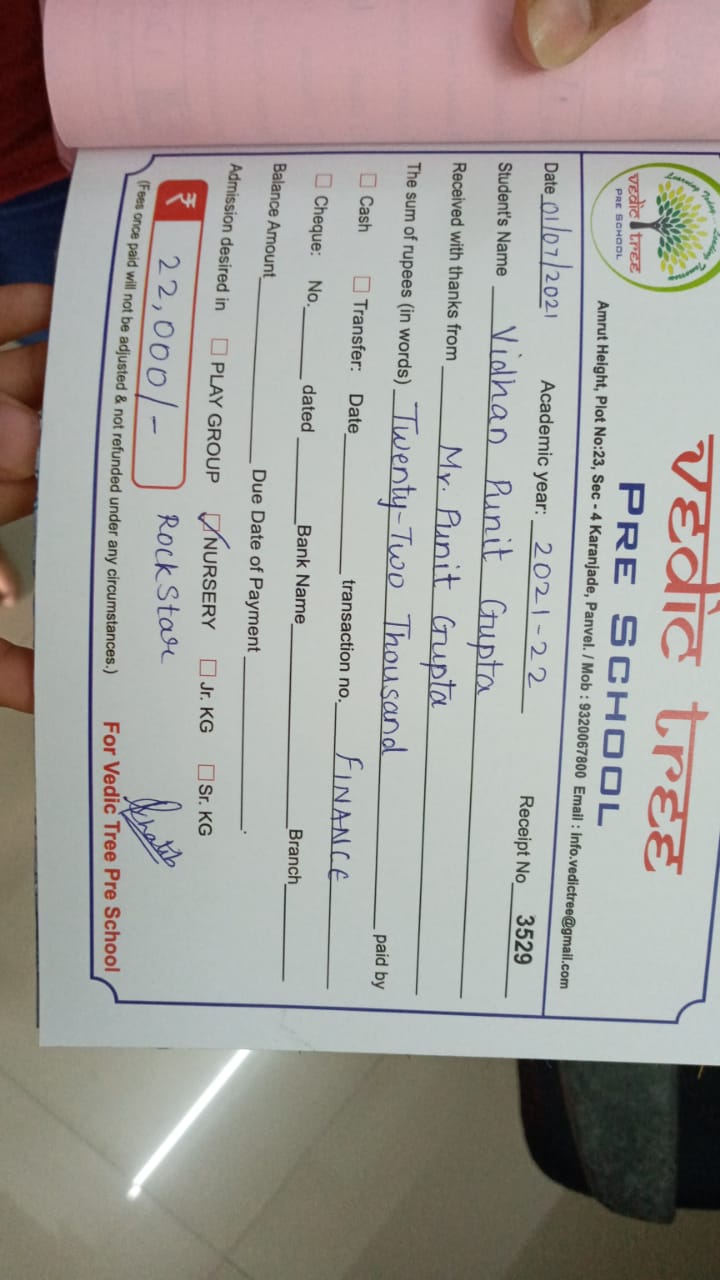 Learning Today... Leading Tomorrow
vedic tree
PRE SCHOOL
vedic tree
PRE SCHOOL
Amrut Height, Plot No:23, Sec - 4 Karanjade, Panvel. / Mob : 9320067800 Email : info.vedictree@gmail.com
Date 01/07/2021 Academic year: 2021-22 Receipt No 3529
Student's Name Vidhan Punit Gupta
Received with thanks from Mr. Punit Gupta
The sum of rupees (in words) Twenty-Two Thousand paid by
Cash Transfer: Date transaction no. FINANCE
Cheque: No. dated Bank Name Branch
Balance Amount Due Date of Payment .
Admission desired in PLAY GROUP NURSERY Jr. KG Sr. KG
₹ 22,000/- RockStar
(Fees once paid will not be adjusted & not refunded under any circumstances.) For Vedic Tree Pre School